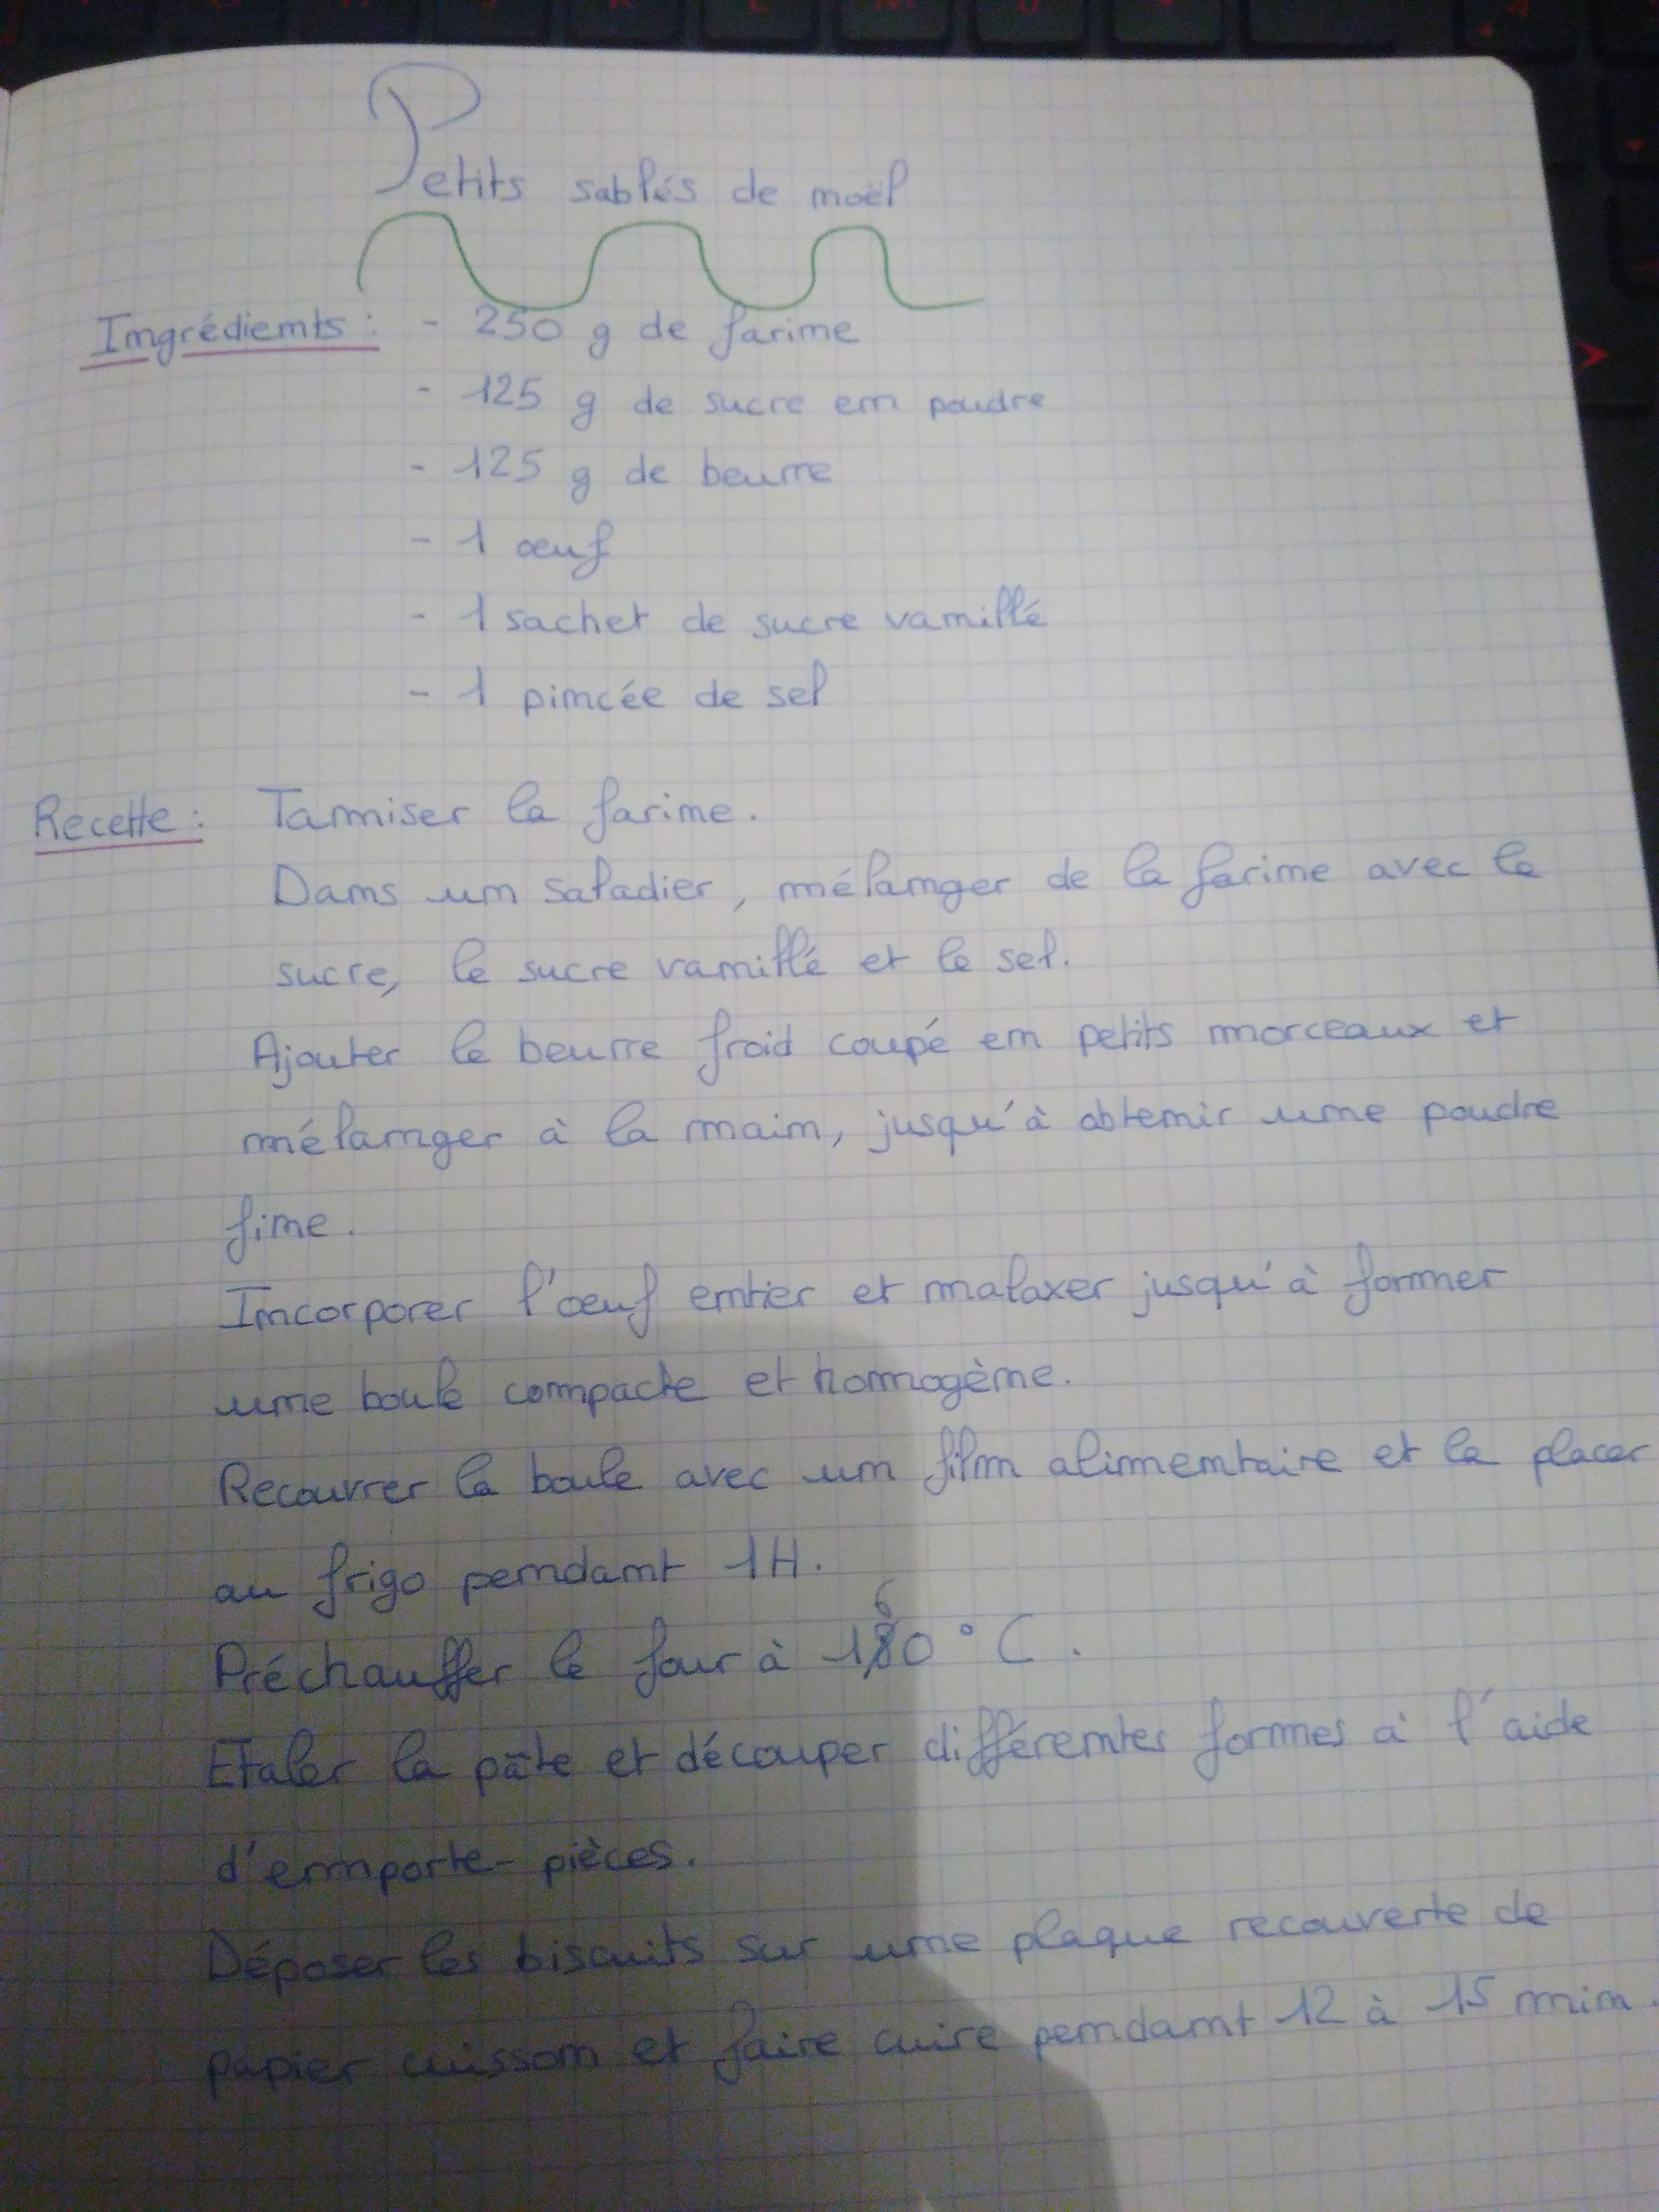 Petits sablés de noël
Ingrédients : - 250 g de farine
- 125 g de sucre en poudre
- 125 g de beurre
- 1 œuf
- 1 sachet de sucre vanillé
- 1 pincée de sel
Recette : Tamiser la farine.
Dans un saladier, mélanger de la farine avec le
sucre, le sucre vanillé et le sel.
Ajouter le beurre froid coupé en petits morceaux et
mélanger à la main, jusqu'à obtenir une poudre
fine.
Incorporer l'œuf entier et malaxer jusqu'à former
une boule compacte et homogène.
Recouvrer la boule avec un film alimentaire et la placer
au frigo pendant 1H.
Préchauffer le four à 160 °C.
Etaler la pâte et découper différentes formes à l'aide
d'emporte-pièces.
Déposer les biscuits sur une plaque recouverte de
papier cuisson et faire cuire pendant 12 à 15 min.